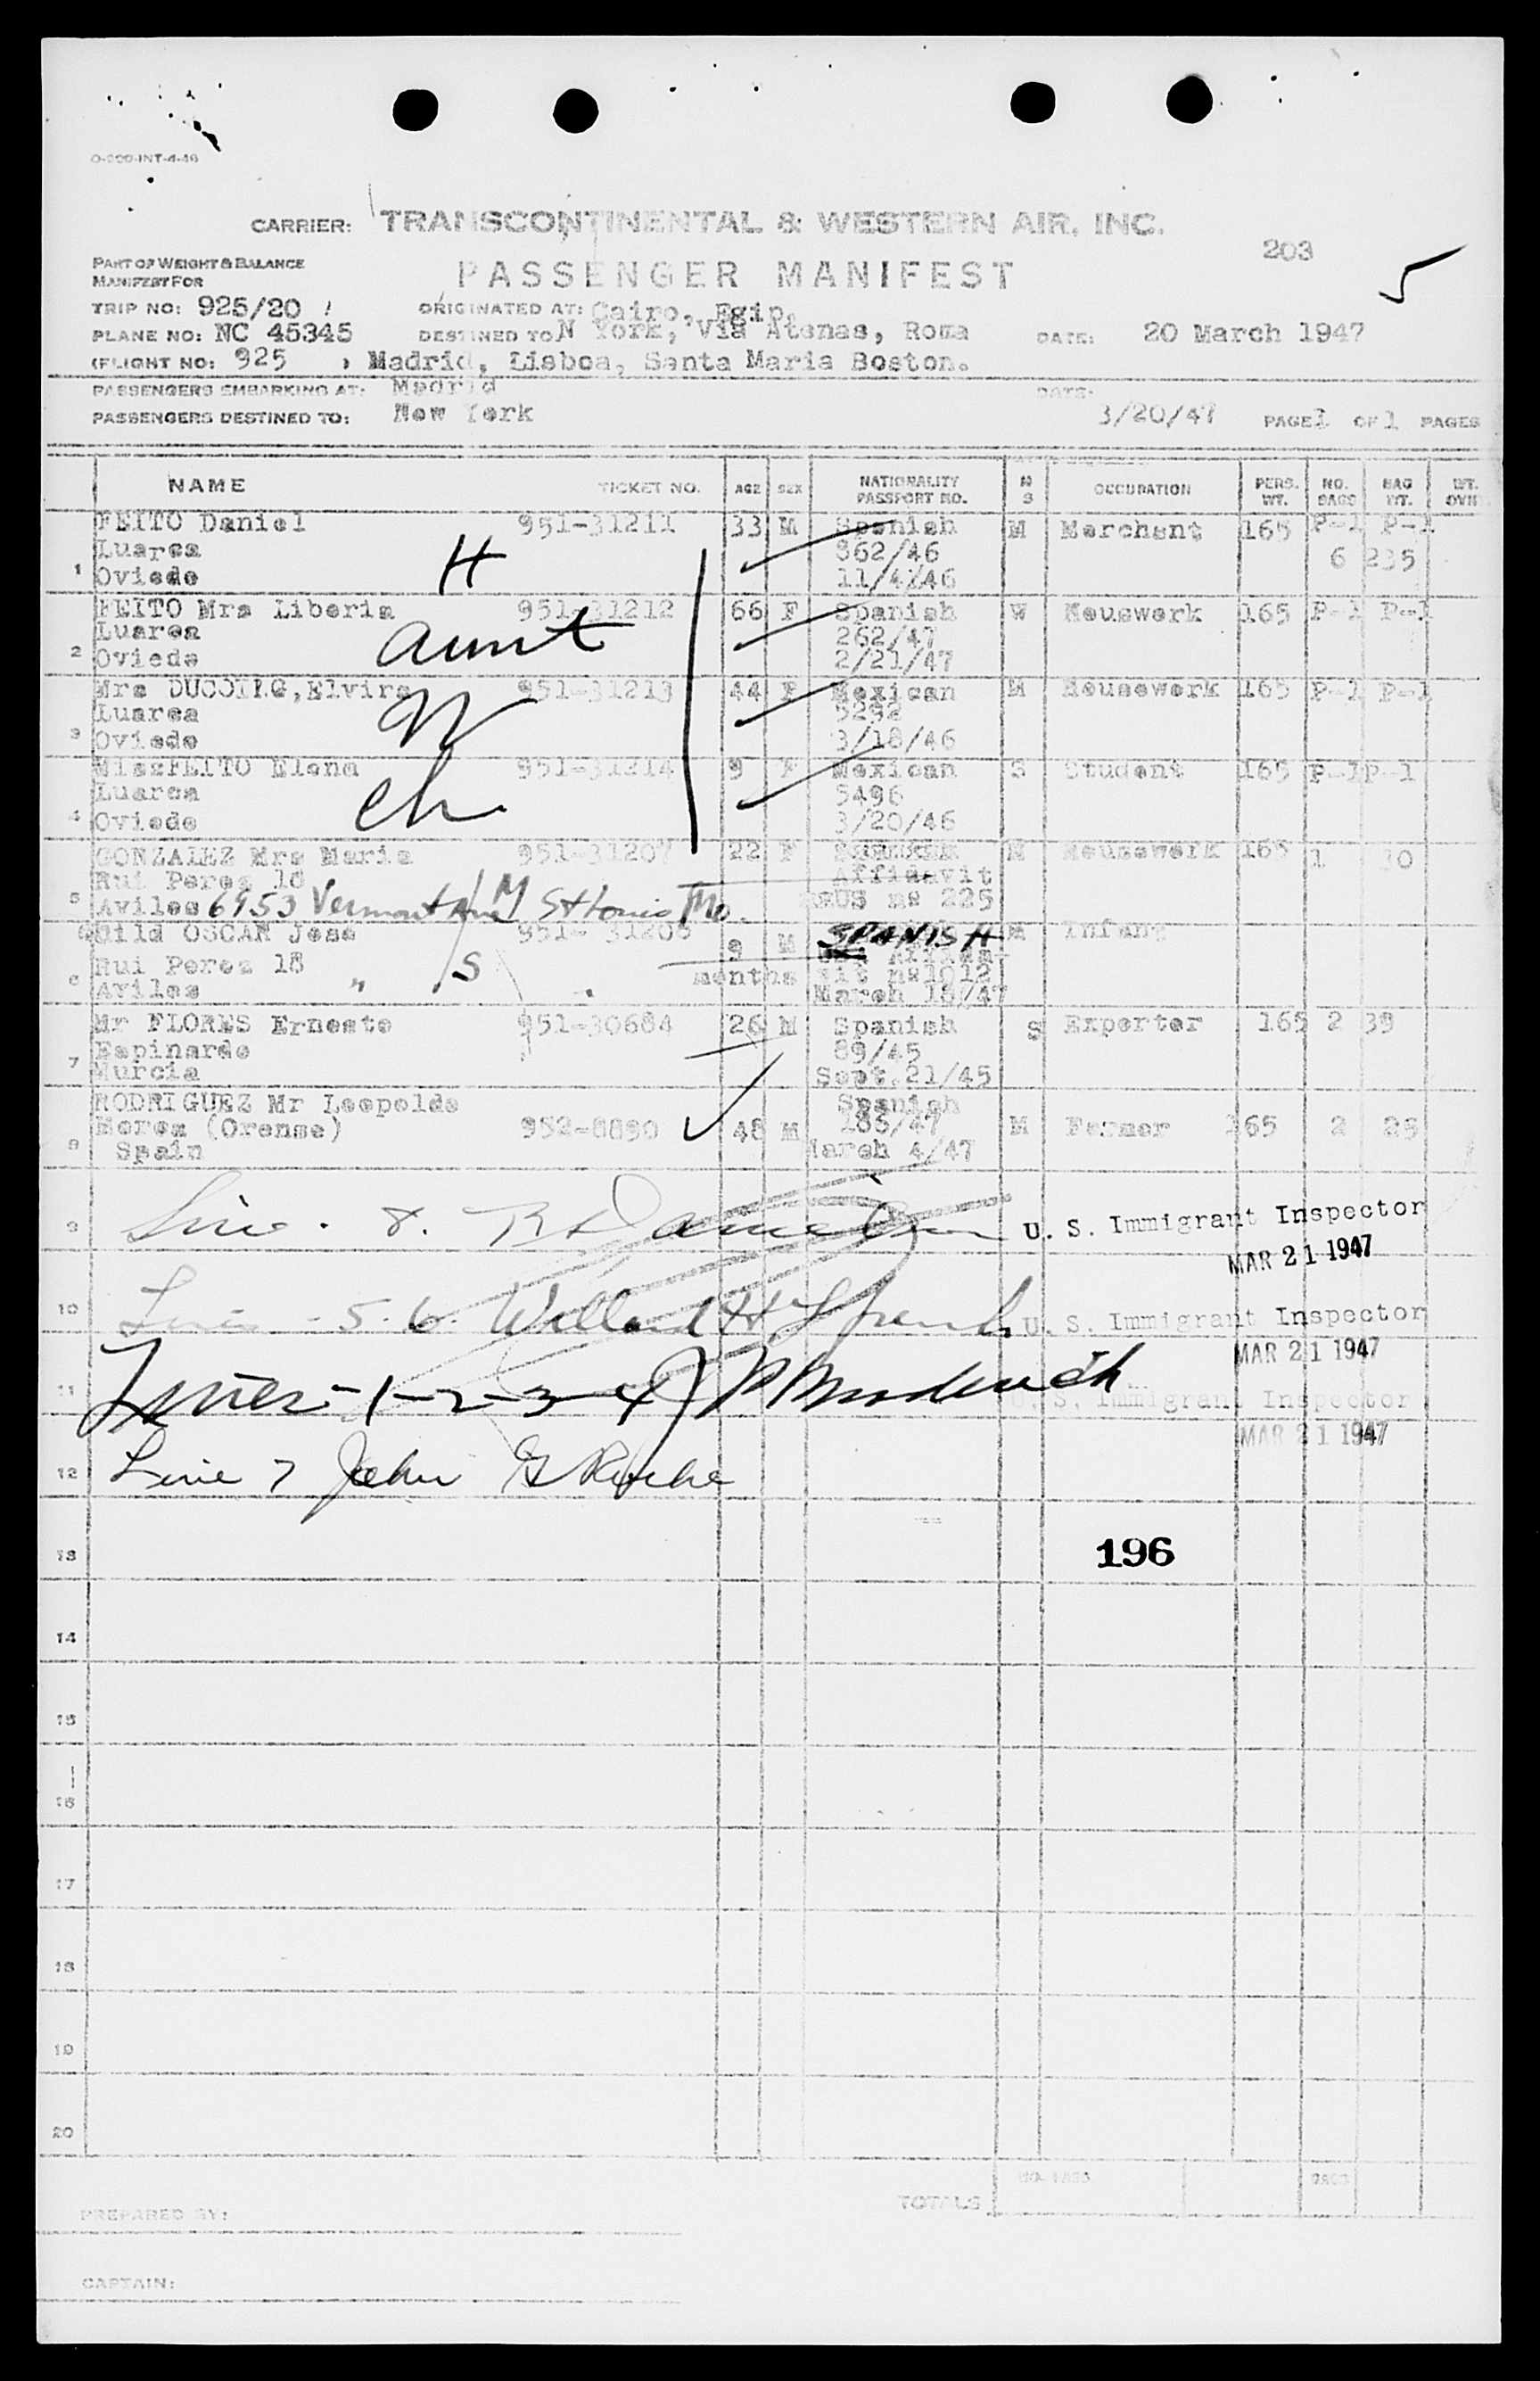 CARRIER: TRANSCONTINENTAL & WESTERN AIR, INC.
203
PART OF WEIGHT & BALANCE
MANIFEST FOR
PASSENGER MANIFEST
TRIP NO: 925/20 ORIGINATED AT: Cairo, Egip.
PLANE NO: NC 45345 DESTINED TO N York, Via Atenas, Roma DATE: 20 March 1947
(FLIGHT NO: 925 ) Madrid, Lisboa, Santa Maria Boston.
PASSENGERS EMBARKING AT: Madrid DATE:
PASSENGERS DESTINED TO: New York 3/20/47 PAGE 1 OF 1 PAGES
NAME TICKET NO. AGE SEX NATIONALITY PASSPORT NO. M S OCCUPATION PERS. WT. NO. BAGS BAG WT. WT. OVR
FEITO Daniel 951-31211 33 M Spanish M Merchant 165 P-1 P-1
Luarca H 862/46 6 235
1 Oviedo 11/4/46
FEITO Mrs Liberia 951-31212 66 F Spanish W Houswork 165 P-1 P-1
Luarca aunt 262/47
2 Oviedo 2/21/47
Mrs Elvira 951-31213 44 F Mexican M Housework 165 P-1 P-1
Luarca W
3 Oviedo 3/18/46
Miss FEITO Elena 951-31214 9 F Mexican S Student 165 P-1 P-1
Luarca ch 5496
4 Oviedo 3/20/46
GONZALEZ Mrs Maria 951-31207 22 F M Housework 165 1
Rui Perez 18 Affidavit
5 Aviles 6953 Vermont Ave M St Louis Mo. 225
Child OSCAR Jose 951- 31208 9 M SPANISH M Infant
Rui Perez 18 " S months
6 Aviles March 18/47
Mr FLORES Ernesto 951-30684 26 M Spanish S Exporter 165 2 39
Espinardo 89/45
7 Murcia Sept.21/45
RODRIGUEZ Mr Leopoldo Spanish
(Orense) 952-8890 48 M 186/47 M Farmer 165 2 26
8 Spain March 4/47
9 Line . 8. U. S. Immigrant Inspector
MAR 21 1947
10 Lines - 5. 6. Willard H. U. S. Immigrant Inspector
MAR 21 1947
11 Lines-1-2-3-4
U. S. Immigrant Inspector
MAR 21 1947
12 Line 7 John G
13 196
14
15
16
17
18
19
20
TOTALS NO. PASS. BAGS
PREPARED BY:
CAPTAIN: